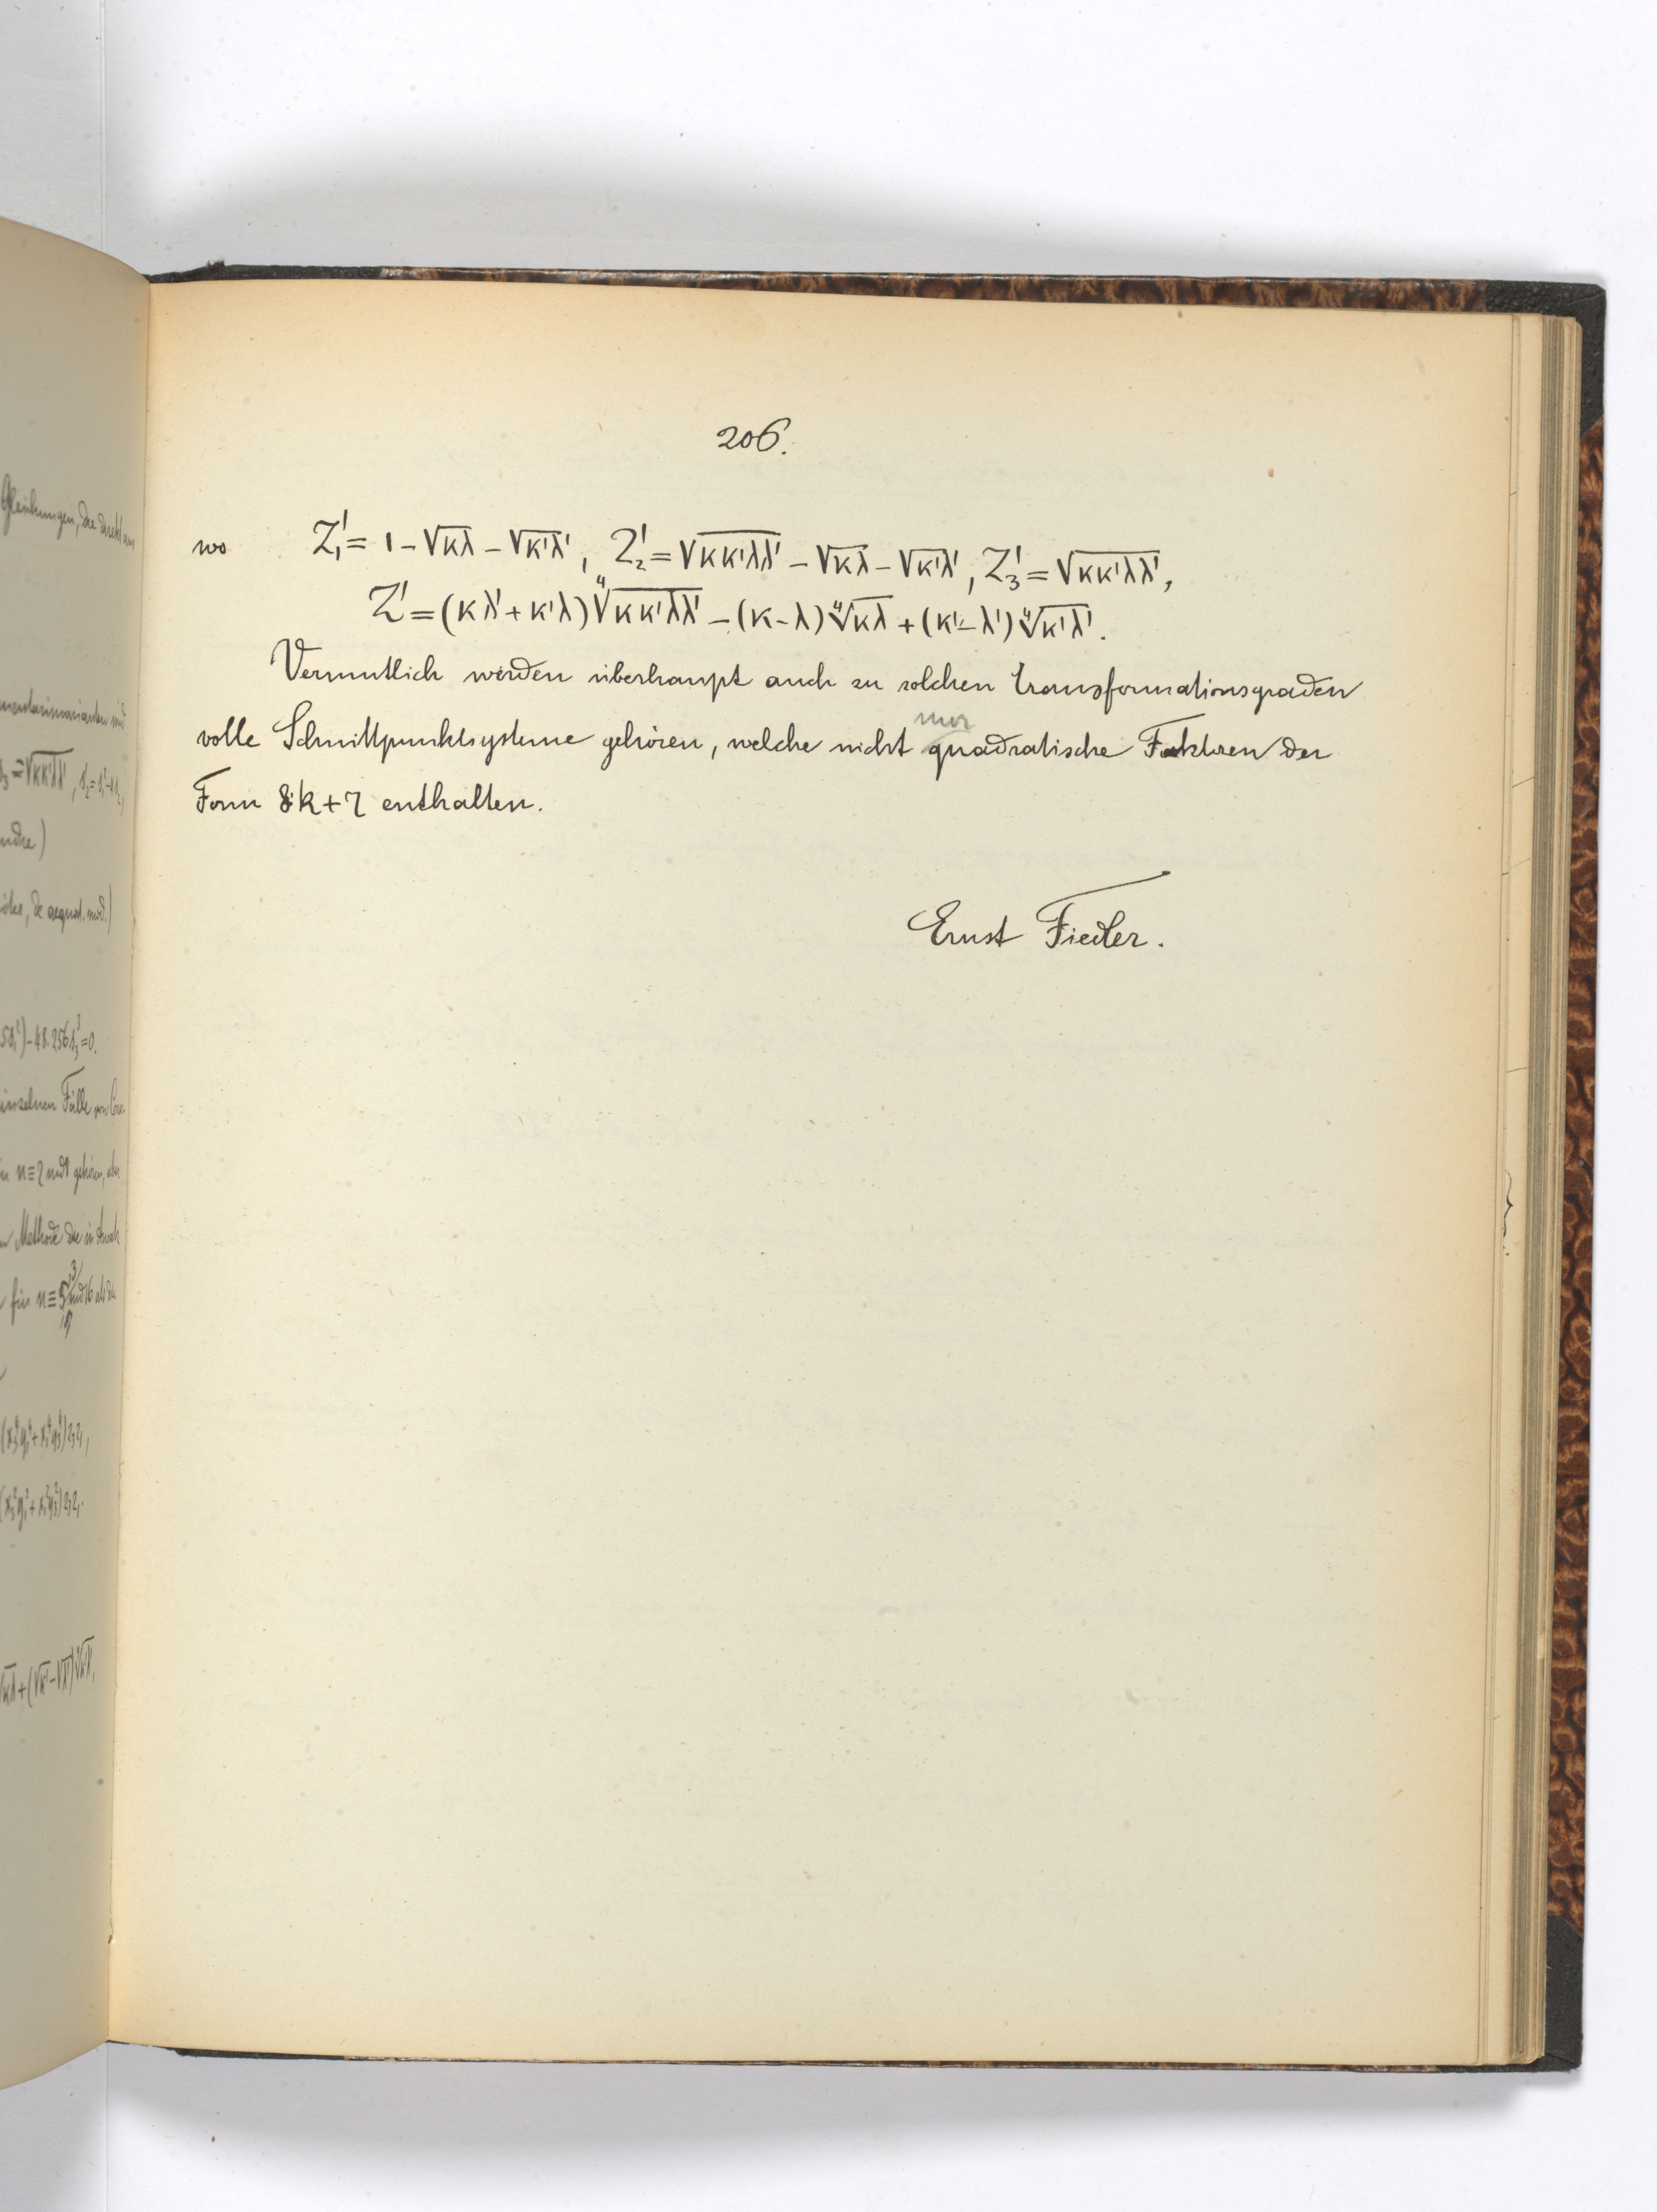 206.
wo Z₁' = 1 - √κλ - √κ'λ', Z₂' = √κκ'λλ' - √κλ - √κ'λ', Z₃' = √κκ'λλ',
Z' = (κλ' + κ'λ) ∜κκ'λλ' - (κ - λ) ∜κλ + (κ' - λ') ∜κ'λ'.
Vermutlich werden überhaupt auch zu solchen Transformationsgraden
volle Schnittpunktsysteme gehören, welche nicht nur quadratische Faktoren der
Form 8k+7 enthalten.
Ernst Fiedler.
Gleichungen, die direkt aus
s₃ = √κκ'λλ'
de aequat. mod.)
- 48.256 s₃³ = 0.
einzelnen Fälle von
n ≡ 7 mod 8 gehören, aber
Methode die in
für n ≡